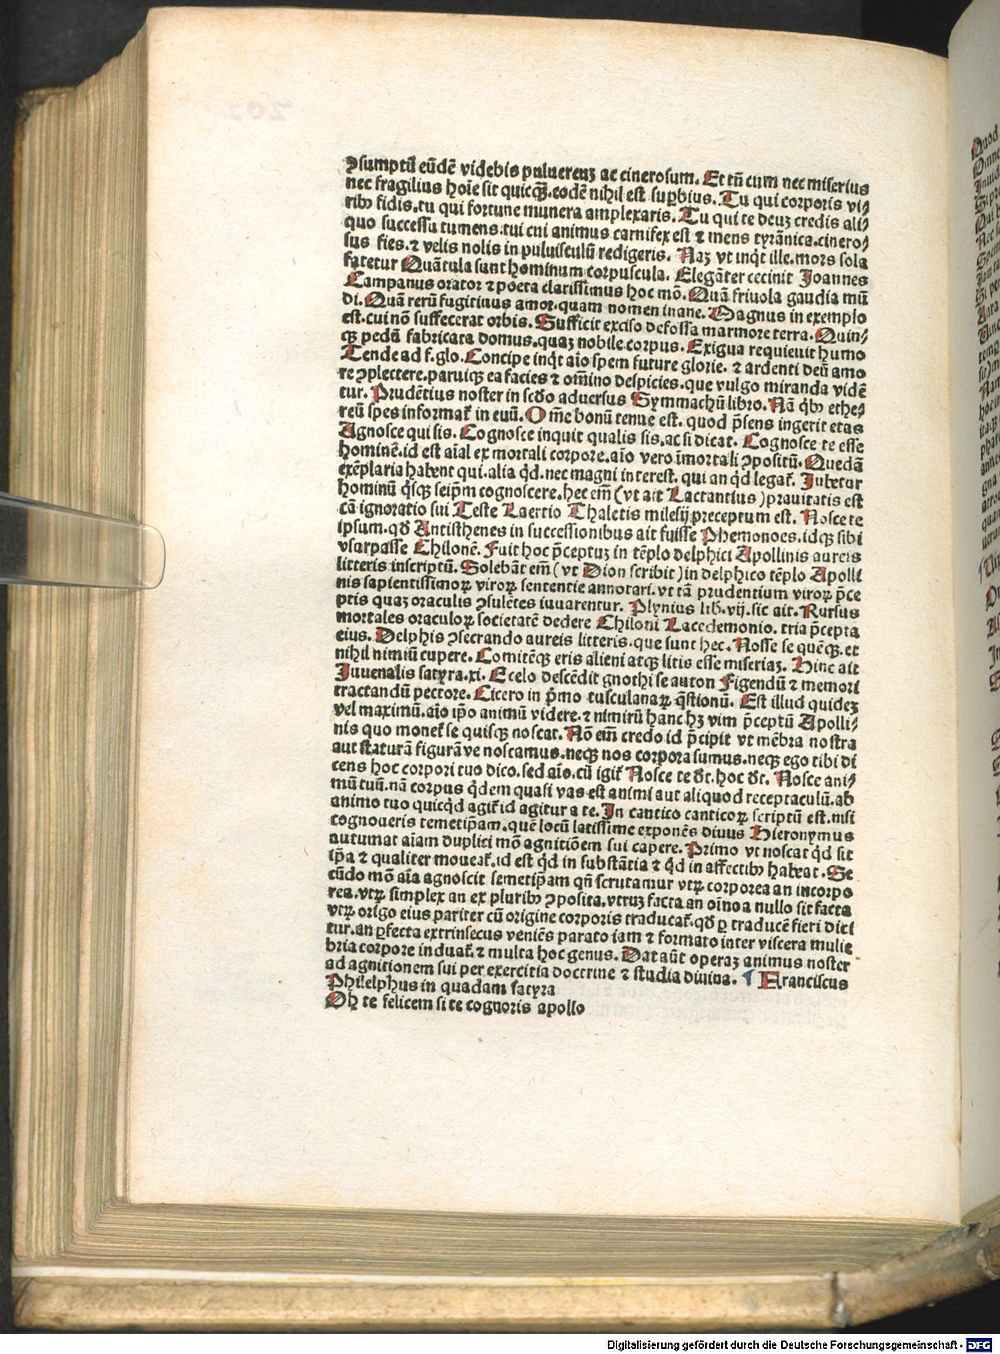 ꝯsumptū eūdē videbis puluereuꝫ ac cinerosum. Et tñ cum nec miserius
nec fragilius hoīe sit quicꝙ̄. eodē nihil est suꝑbius. Tu qui corporis vi⸗
ribꝰ fidis. tu qui fortune munera amplexaris. Tu qui te deuꝫ credis ali⸗
quo successu tumens. tui cui animus carnifex est ⁊ mens tyrānica. cinero⸗
sus fies. ⁊ velis nolis in puluisculū redigeris. Naꝫ vt inqt ille. mors sola
fatetur Quātula sunt hominum corpuscula. Elegāter cecinit Joannes
Campanus orator ⁊ poeta clarissimus hoc mō. Quā friuola gaudia mū
di. Quā rerū fugitiuus amor. quam nomen inane. Magnus in exemplo
est. cui nō suffecerat orbis. Sufficit exciso defossa marmore terra. Quin⸗
qꝫ pedū fabricata domus. quaꝫ nobile corpus. Exigua requieuit humo
Tende ad f. glo. Concipe inqt aīo spem future glorie. ⁊ ardenti deū amo
re ꝯplectere. paruiqꝫ ea facies ⁊ om̄ino despicies. que vulgo miranda vidē
tur. Prudētius noster in scd̄o aduersus Symmachū libro. Nā qbꝰ ethe⸗
reū spes informat̄ in euū. O m̄e bonū tenue est. quod p̄sens ingerit etas
Agnosce qui sis. Cognosce inquit qualis sis. ac si dicat. Cognosce te esse
hominē. id est aīal ex mortali corpore. aīo vero īmortali ꝯpositū. Quedā
exēplaria habent qui. alia qd. nec magni interest. qui an qd legat̄. Jubetur
hominū qsqꝫ seip̄m cognoscere. hec em̄ (vt ait Lactantius) prauitatis est
cā ignoratio sui Teste Laertio Thaletis milesij preceptum est. Nosce te
ipsum. qd̄ Antisthenes in successionibus ait fuisse Phemonoes. idqꝫ sibi
vsurpasse Chilonē. Fuit hoc p̄ceptuꝫ in tēplo delphici Apollinis aureis
litteris inscriptū. Solebāt em̄ (vt Dion scribit) in delphico tēplo Apolli
nis sapientissimoꝝ viroꝝ sententie annotari. vt tā prudentium viroꝝ p̄ce
ptis quaꝫ oraculis ꝯsulētes iuuarentur. Plynius lib. vij. sic ait. Rursus
mortales oraculoꝝ societatē dedere Chiloni Lacedemonio. tria p̄cepta
eius. Delphis ꝯsecrando aureis litteris. que sunt hec. Nosse se quēqꝫ. et
nihil nimiū cupere. Comitēqꝫ eris alieni atqꝫ litis esse miseriaꝫ. Hinc ait
Juuenalis satyra. xi. E celo descēdit gnothi se auton Figendū ⁊ memori
tractandū pectore. Cicero in p̄mo tusculanaꝝ qstionū. Est illud quideꝫ
vel maximū. aīo ip̄o animū videre. ⁊ nimirū hanc hꝫ vim p̄ceptū Apolli⸗
nis quo monet̄ se quisqꝫ noscat. Nō em̄ credo id p̄cipit vt mēbra nostra
aut staturā figurāve noscamus. neqꝫ nos corpora sumus. neqꝫ ego tibi di
cens hoc corpori tuo dico. sed aīo. cū igit̄ Nosce te dr̄. hoc dr̄. Nosce ani⸗
mū tuū. nā corpus qdem quasi vas est animi aut aliquod receptaculū. ab
animo tuo quicqd agit̄ id agitur a te. In cantico canticoꝝ scriptū est. nisi
cognoueris temetip̄am. quē locū latissime exponēs diuus Hieronymus
autumat aīam duplici mō agnitiōem sui capere. Primo vt noscat qd sit
ip̄a ⁊ qualiter moueat̄. id est qd in substātia ⁊ qd in affectibꝰ habeat. Se
cūdo mō aīa agnoscit semetip̄am qn̄ scrutamur vtꝝ corporea an incorpo
rea. vtꝝ simplex an ex pluribꝰ ꝯposita. vtruꝫ facta an oīno a nullo sit facta
vtꝝ origo eius pariter cū origine corporis traducat̄. qd̄ ꝑ traducē fieri dici
tur. an ꝑfecta extrinsecus veniēs parato iam ⁊ formato inter viscera mulie
bria corpore induat̄. ⁊ multa hoc genus. Dat aūt operaꝫ animus noster
ad agnitionem sui per exercitia doctrine ⁊ studia diuina. ¶ Franciscus
Philelphus in quadam satyra
Oh te felicem si te cognoris apollo
Digitalisierung gefördert durch die Deutsche Forschungsgemeinschaft - DFG